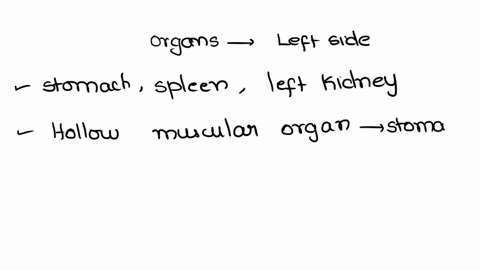 organs → Left side
✓ stomach, spleen, left kidney
✓ Hollow muscular organ → stoma